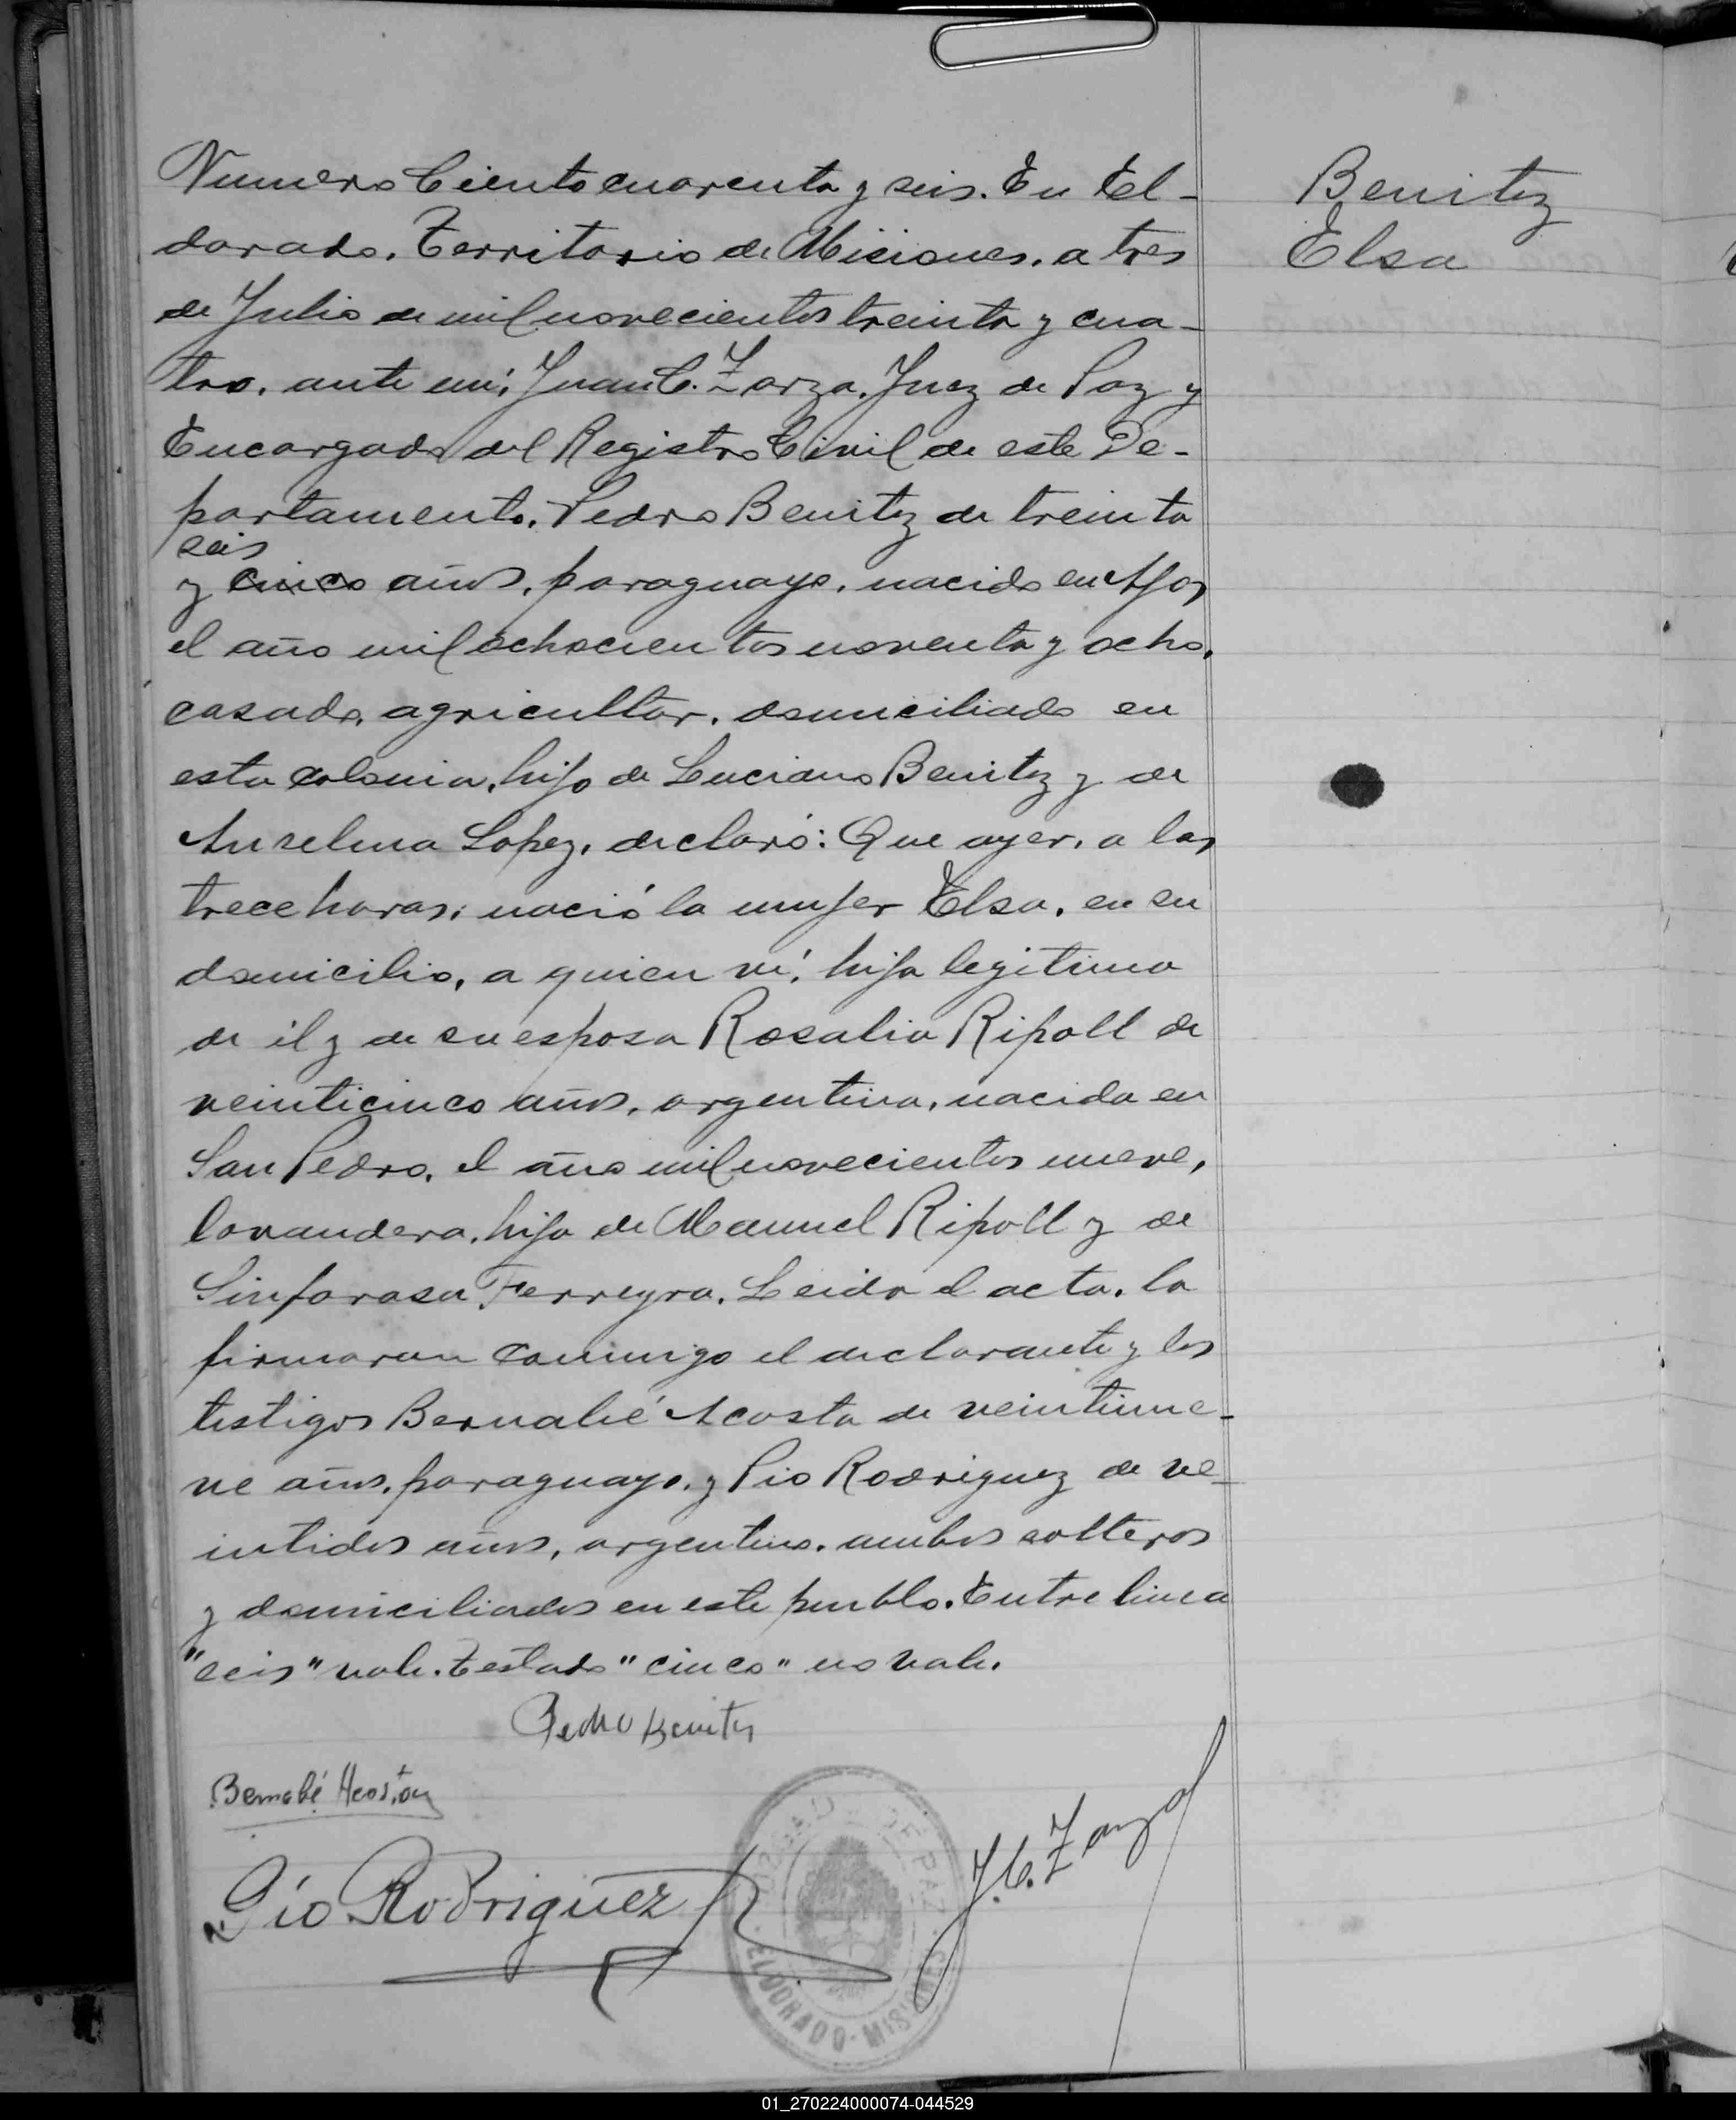 Numero Ciento cuarenta y seis. En El-
dorado. Territorio de Misiones. a tres
de Julio de mil novecientos treinta y cua-
tro. ante mí, Juan C. Zarza. Juez de Paz y
Encargado del Registro Civil de este De-
partamento. Pedro Benitez de treinta
seis
y cinco años, paraguayo, nacido en Ajos
el año mil ochocientos noventa y ocho,
casado, agricultor, domiciliado en
esta colonia, hijo de Luciano Benitez y de
Anselma Lopez, declaró: Que ayer, a las
trece horas; nació la mujer Elsa, en su
domicilio, a quien ví, hija legitima
de él y de su esposa Rosalia Ripoll de
veinticinco años, argentina, nacida en
San Pedro, el año mil novecientos nueve,
lavandera, hija de Manuel Ripoll y de
Sinforosa Ferreyra. Leida el acta, la
firmaron conmigo el declarante y los
testigos Bernabé Acosta de veintinue-
ve años, paraguayo, y Pio Rodriguez de ve-
intidos años, argentino, ambos solteros
y domiciliados en este pueblo. Entre linea
"seis" vale. Testado "cinco" no vale.
Benitez
Elsa
Pedro Benitez
Bernabé Acosta
Pío Rodriguez
J. C. Zarza
JUZGADO DE PAZ
ELDORADO - MISIONES
01_270224000074-044529